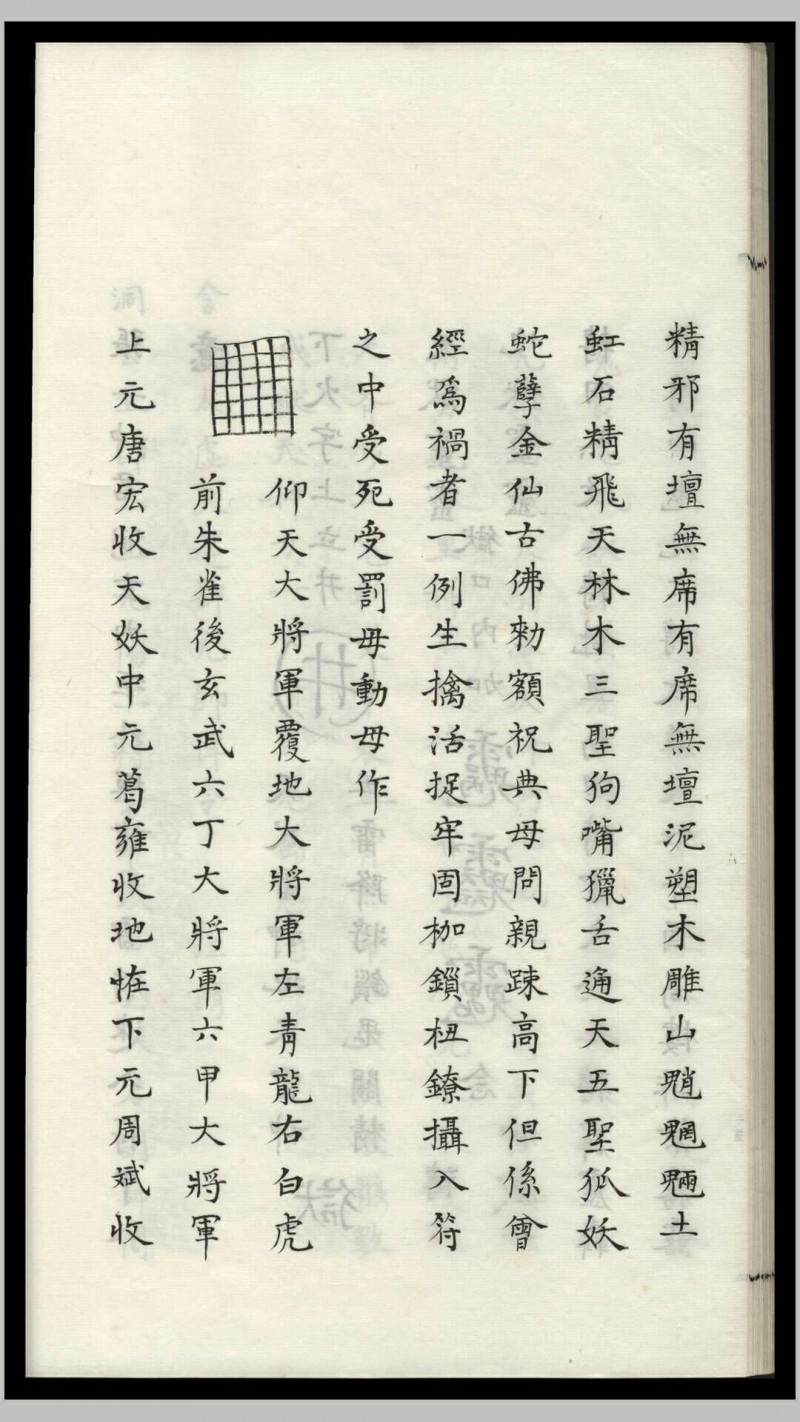 精邪有壇無席有席無壇泥塑木雕山魈魍魎土
虹石精飛天林木三聖狗嘴獵舌通天五聖狐妖
蛇孽金仙古佛勑額祝典毋問親踈高下但係曾
經為禍者一例生擒活捉牢固枷鎖杻鐐攝入符
之中受死受罰毋動毋作
仰天大將軍覆地大將軍左青龍右白虎
前朱雀後玄武六丁大將軍六甲大將軍
上元唐宏收天妖中元葛雍收地恠下元周斌收